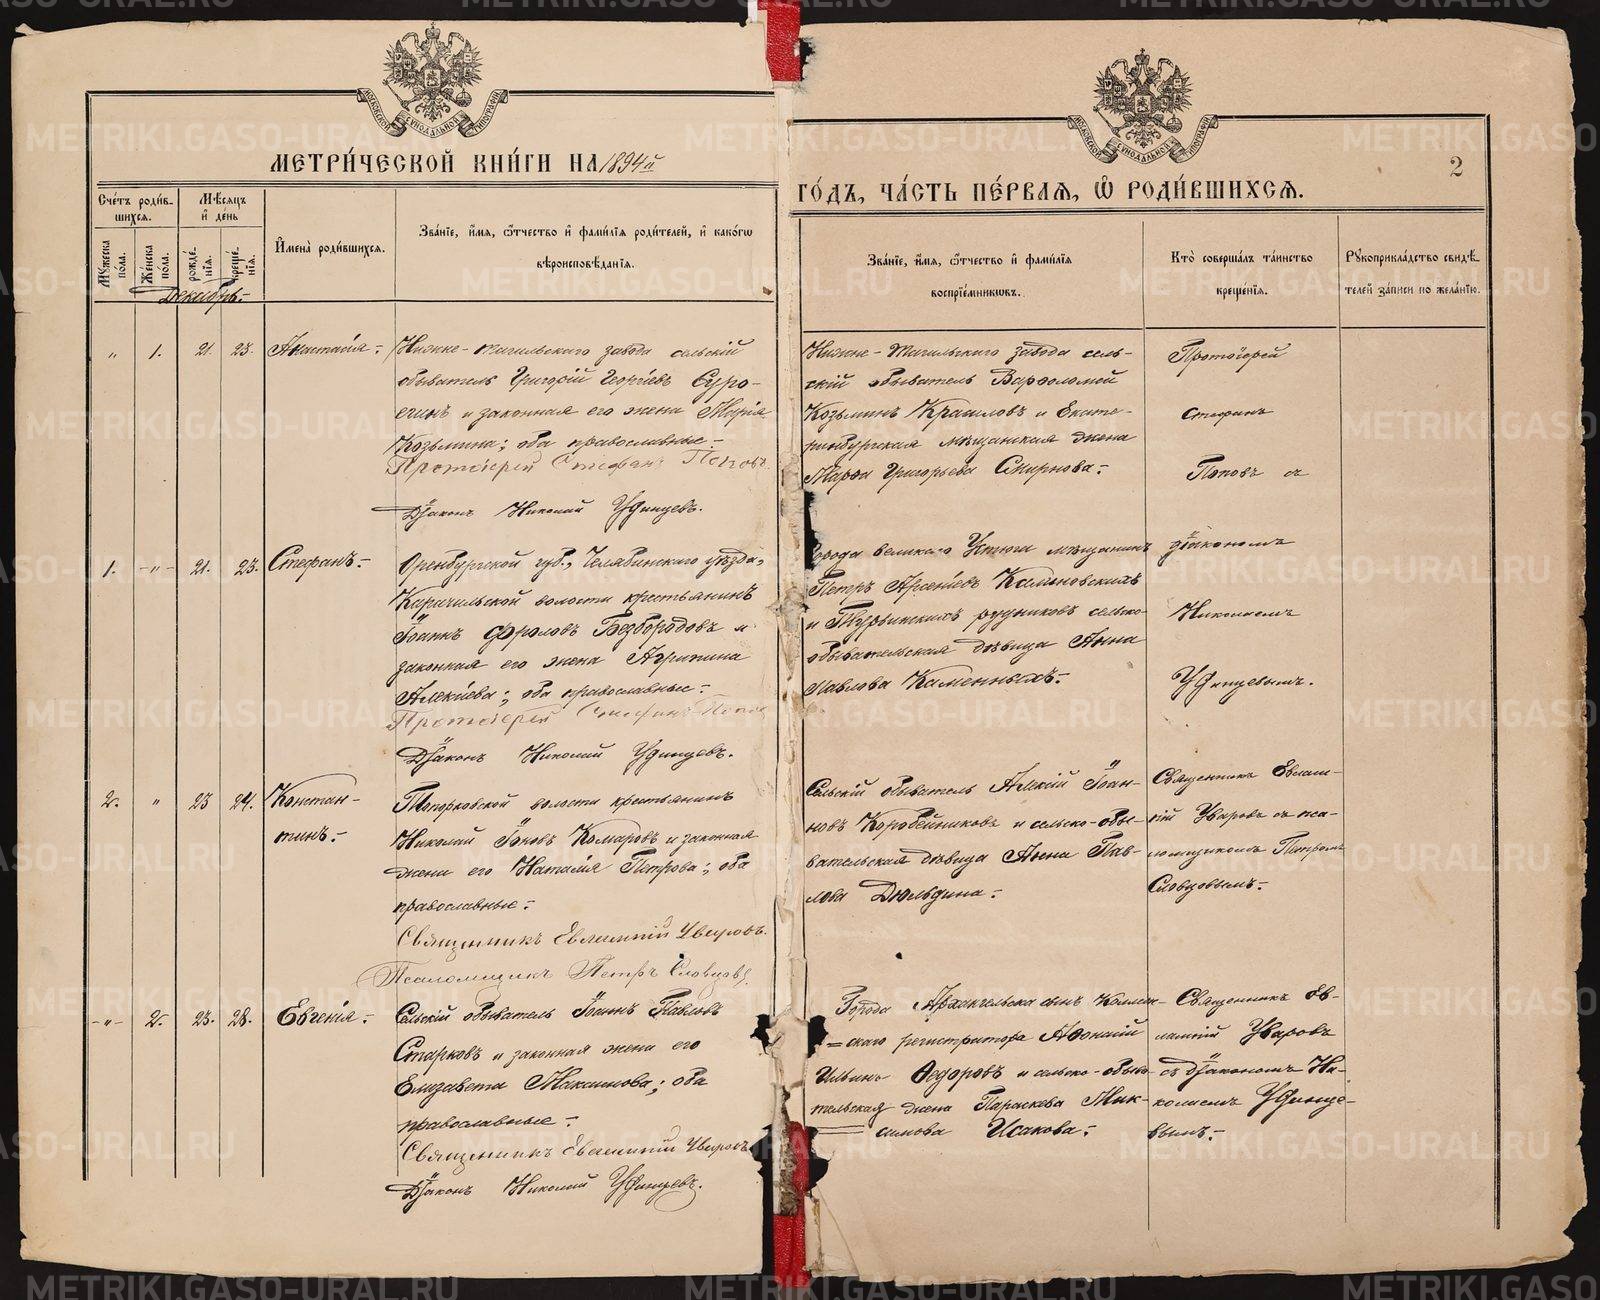 МОСКОВСКОЙ СѴНОДАЛЬНОЙ ТИПОГРАФІИ
МЕТРИ́ЧЕСКОЙ КНИ́ГИ НА 1894й
Сче́тъ роди́в-
шихся.
Мѣ́сяцъ
и̓ де́нь
Мꙋ́жеска
по́ла.
Же́нска
по́ла.
рожде́-
нїя.
креще́-
нїя.
И̓мена̀ роди́вшихся.
Зва́нїе, и̓́мя, ѻ҆́тчество и҆ фами́лїя роди́телей, и҆ како́гѡ
вѣроисповѣ́данїя.
Декабрь.-
" 1. 21. 23. Анастасія.-
Нижне-Тагильскаго завода сельскій
обыватель Григорій Георгіевъ Суро-
егинъ и законная его жена Марія
Козьмина; оба православные.-
Протоіерей Стефанъ Поповъ.
Діаконъ Николай Удинцевъ.
1. -"- 21. 23. Стефанъ.-
Оренбургской губ., Челябинскаго уѣзда,
Каричильской волости крестьянинъ
Іоаннъ Фроловъ Безбородовъ и
законная его жена Агрипина
Алексіева; оба православные.-
Протоіерей Стефанъ Попов
Діаконъ Николай Удинцевъ.
2. " 23 24. Констан-
тинъ.-
волости крестьянинъ
Николай Іоновъ Комаровъ и законная
жена его Наталія Петрова; оба
православные.-
Священникъ Евлампій Уваровъ.
Псаломщикъ Петръ Словцовъ.
-"- 2. 23. 28. Евгенія.-
Сельскій обыватель Іоаннъ Павловъ
Старковъ и законная жена его
Елизавета Максимова; оба
православные.-
Священникъ Евлампій Уваровъ
Діаконъ Николай Удинцевъ.
МОСКОВСКОЙ СѴНОДАЛЬНОЙ ТИПОГРАФІИ
2
ГО́ДЪ, ЧА́СТЬ ПЕ́РВАЯ, Ѡ҆ РОДИ́ВШИХСЯ.
Зва́нїе, и̓́мя, ѻ҆́тчество и҆ фами́лїя
воспрїе́мниковъ.
Кто̀ соверша́лъ та́инство
креще́нїя.
Рꙋкоприкла́дство свидѣ́-
телей за́писи по жела́нїю.
Нижне-Тагильскаго завода сель-
скій обыватель Варѳоломей
Козьминъ Краиловъ и Екате-
ринбургская мѣщанская жена
Марѳа Григорьева Смирнова.-
Протоіерей
Стефанъ
Поповъ съ
города великаго Устюга мѣщанинъ
Петръ Арсеніевъ Калиновскихъ
и Турьинскихъ рудниковъ сельско-
обывательская дѣвица Анна
Павлова Каменныхъ.-
діакономъ
Николаемъ
Удинцевымъ.
Сельскій обыватель Алексій Іоан-
новъ Коробейниковъ и сельско-обы-
вательская дѣвица Анна Пав-
лова Дюльдина.-
Священникъ Евлам-
пій Уваровъ съ пса-
ломщикомъ Петромъ
Словцовымъ.-
Города Архангельска сынъ Коллеж-
=скаго регистратора Аѳонасій
Ильинъ Ѳедоровъ и сельско-обыва-
тельская жена Параскева Мак-
симова Исакова.-
Священникъ Ев-
лампій Уваровъ
съ діакономъ Ни-
колаемъ Удинце-
вымъ.-
METRIKI.GASO-URAL.RU